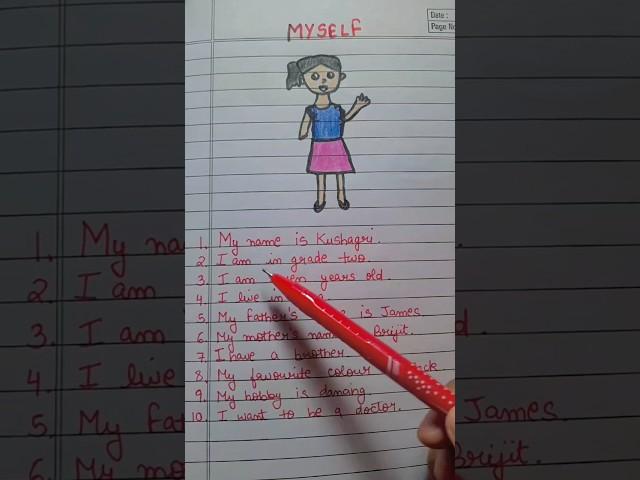 Date :
Page No
MYSELF
1. My name is Kushagri.
2 I am in grade two.
3. I am years old.
4. I live in
5. My father's is James.
6. My mother's name Brijit.
7. I have a brother.
8. My favourite colour
9. My hobby is dancing
10. I want to be a doctor.